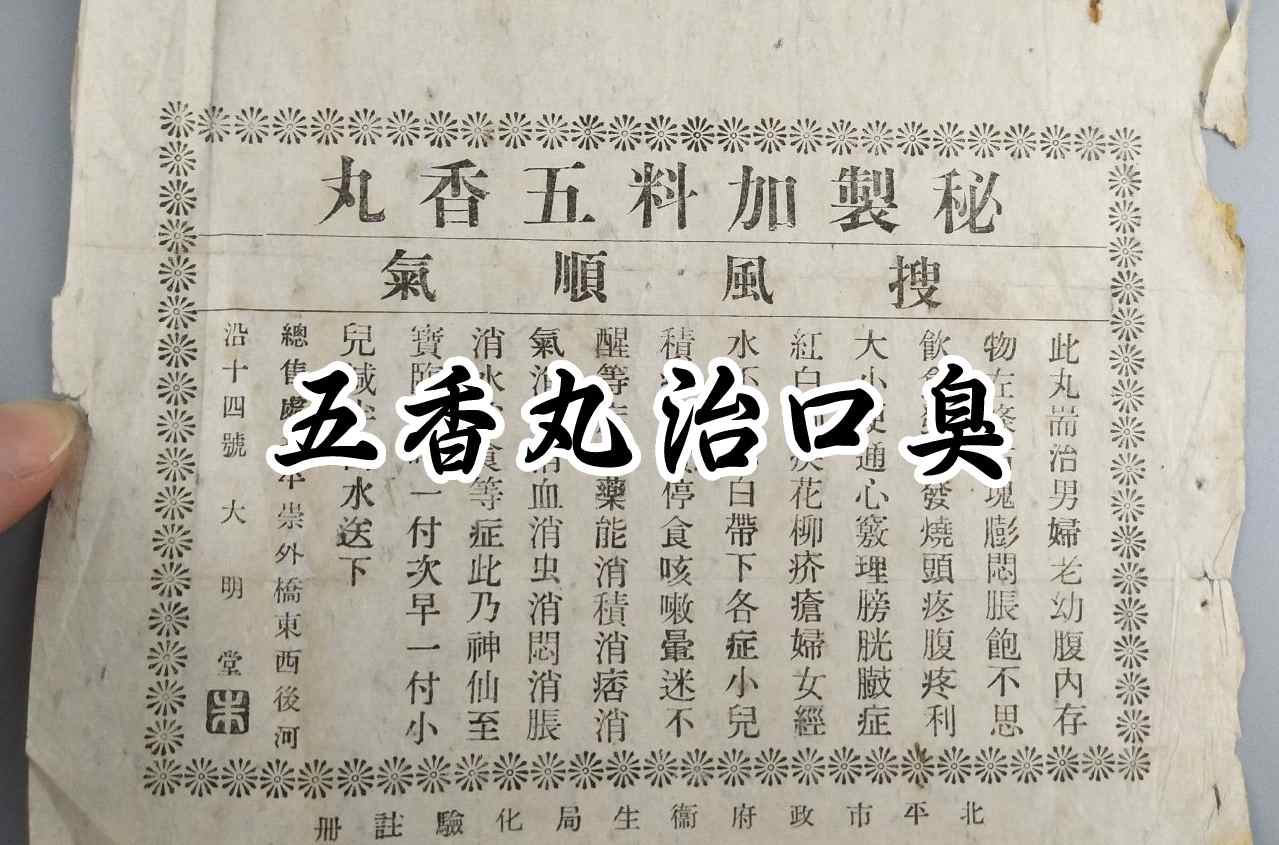 秘製加料五香丸
搜風順氣
此丸耑治男婦老幼腹內存
物左塊膨悶脹飽不思
飲發燒頭疼腹疼利
大小便通心竅理膀胱臌症
紅白花柳疥瘡婦女經
水不白帶下各症小兒
積停食咳嗽暈迷不
醒等藥能消積消痞消
氣消消血消虫消悶消脹
消水食等症此乃神仙至
寶臨一付次早一付小
兒水送下
總售處本崇外橋東西後河
沿十四號大明堂
五香丸治口臭
北平市政府衞生局化驗註冊